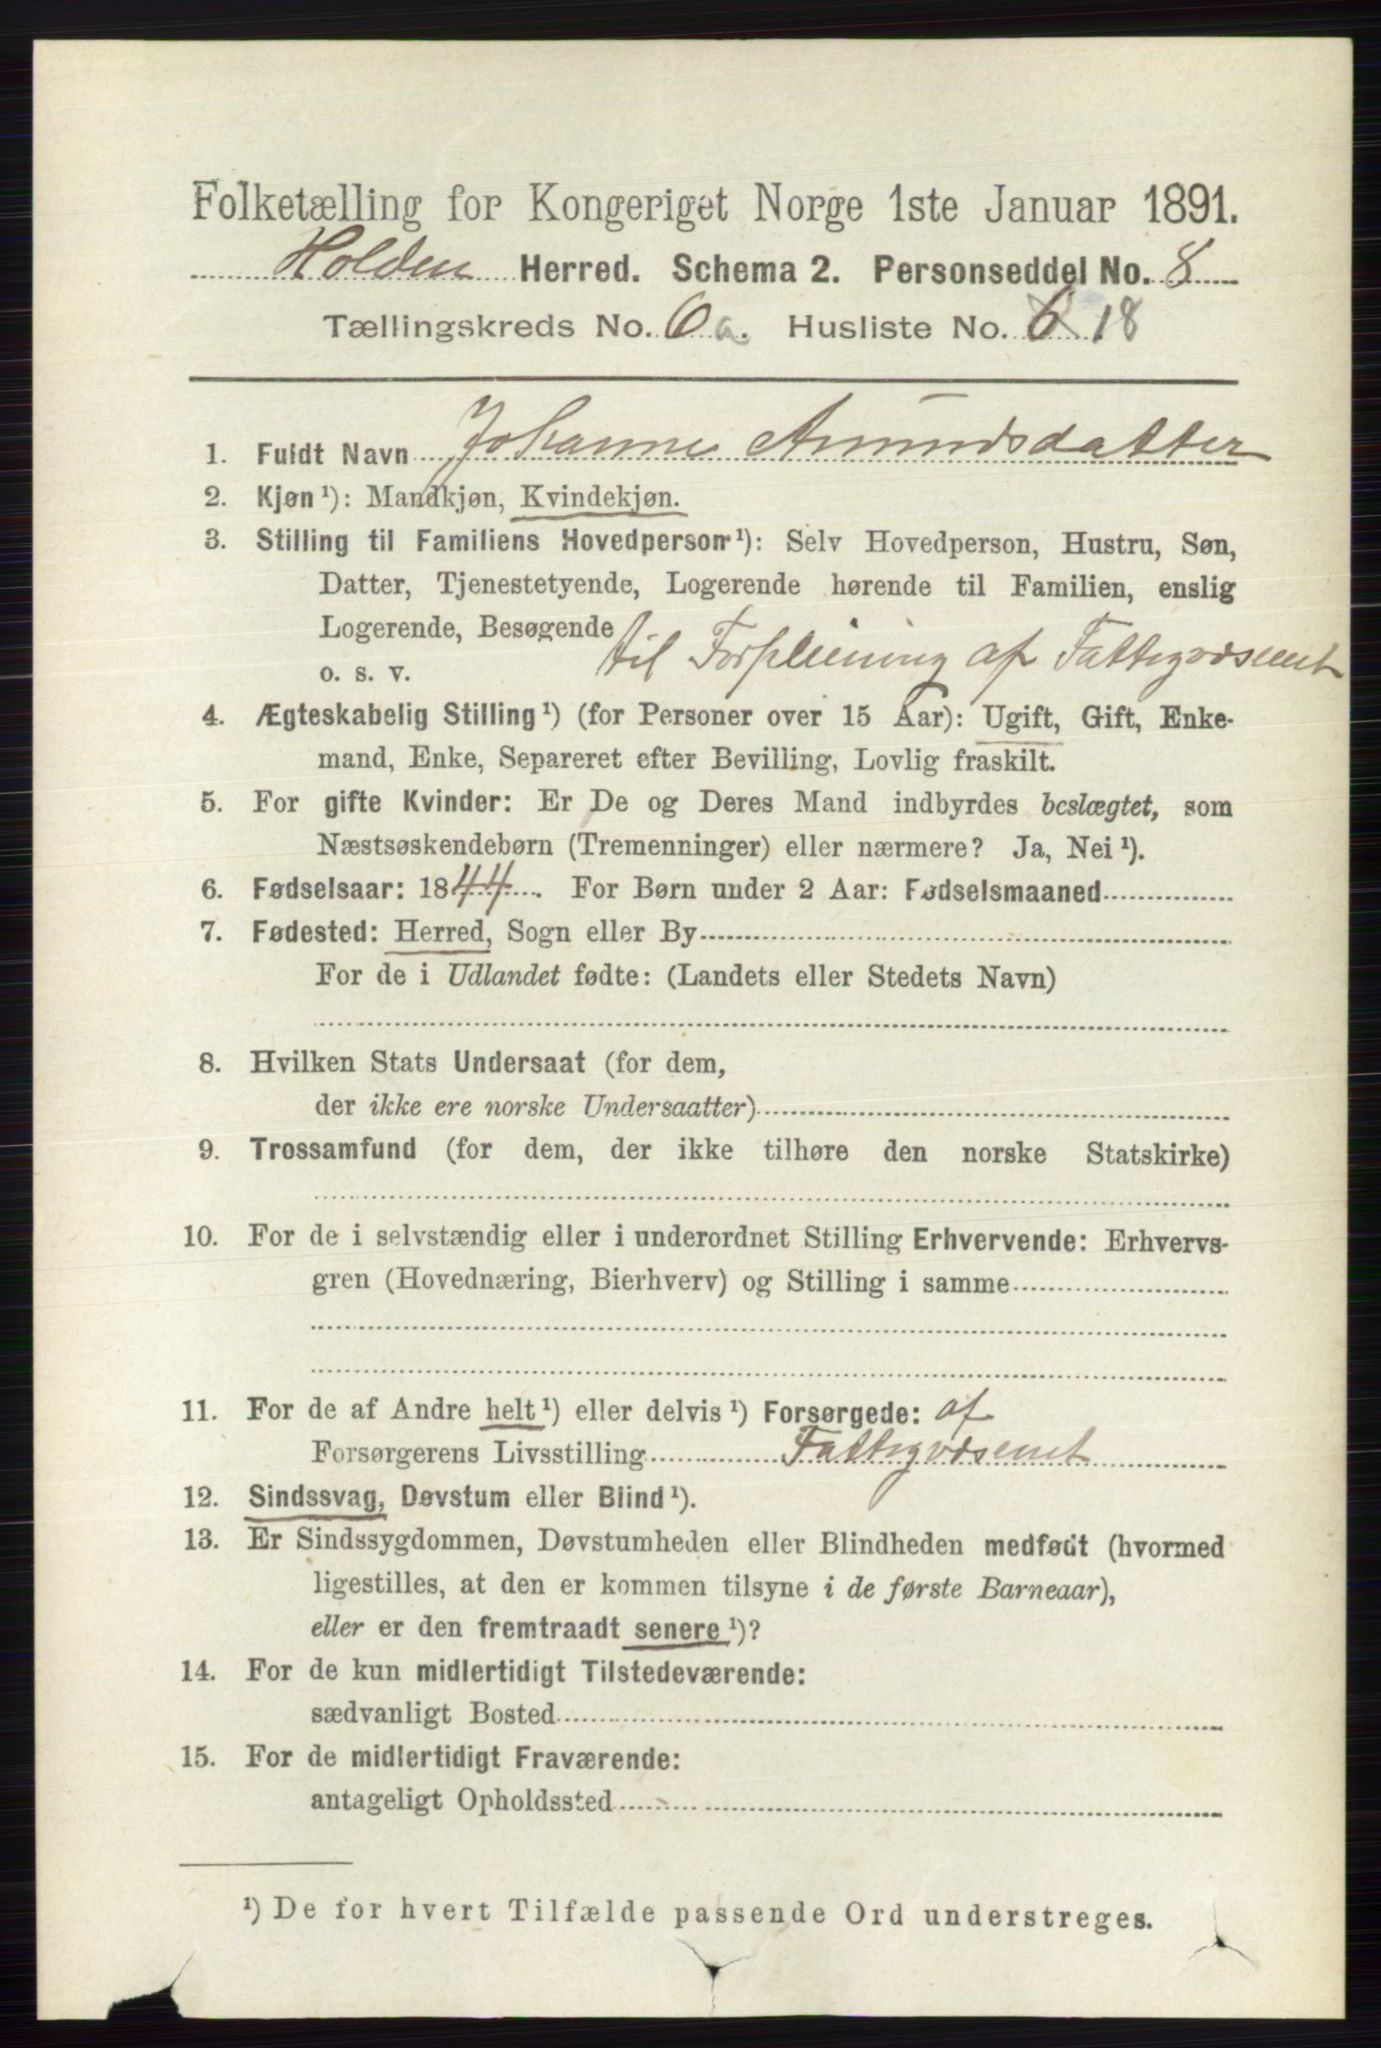 Folketælling for Kongeriget Norge 1ste Januar 1891.
Holden Herred. Schema 2. Personseddel No. 8
Tællingskreds No. 6 a. Husliste No. 6 18
1. Fuldt Navn Johanne Amundsdatter
2. Kjøn ¹): Mandkjøn, Kvindekjøn.
3. Stilling til Familiens Hovedperson ¹): Selv Hovedperson, Hustru, Søn,
Datter, Tjenestetyende, Logerende hørende til Familien, enslig
Logerende, Besøgende
o. s. v. til Forpleining af Fattigvæsenet
4. Ægteskabelig Stilling ¹) (for Personer over 15 Aar): Ugift, Gift, Enke-
mand, Enke, Separeret efter Bevilling, Lovlig fraskilt.
5. For gifte Kvinder: Er De og Deres Mand indbyrdes beslægtet, som
Næstsøskendebørn (Tremenninger) eller nærmere? Ja, Nei ¹).
6. Fødselsaar: 1844. For Børn under 2 Aar: Fødselsmaaned
7. Fødested: Herred, Sogn eller By
For de i Udlandet fødte: (Landets eller Stedets Navn)
8. Hvilken Stats Undersaat (for dem,
der ikke ere norske Undersaatter)
9. Trossamfund (for dem, der ikke tilhøre den norske Statskirke)
10. For de i selvstændig eller i underordnet Stilling Erhvervende: Erhvervs-
gren (Hovednæring, Bierhverv) og Stilling i samme
11. For de af Andre helt ¹) eller delvis ¹) Forsørgede: af
Forsørgerens Livsstilling Fattigvæsenet
12. Sindssvag, Døvstum eller Blind ¹).
13. Er Sindssygdommen, Døvstumheden eller Blindheden medfødt (hvormed
ligestilles, at den er kommen tilsyne i de første Barneaar),
eller er den fremtraadt senere ¹)?
14. For de kun midlertidigt Tilstedeværende:
sædvanligt Bosted
15. For de midlertidigt Fraværende:
antageligt Opholdssted
¹) De for hvert Tilfælde passende Ord understreges.